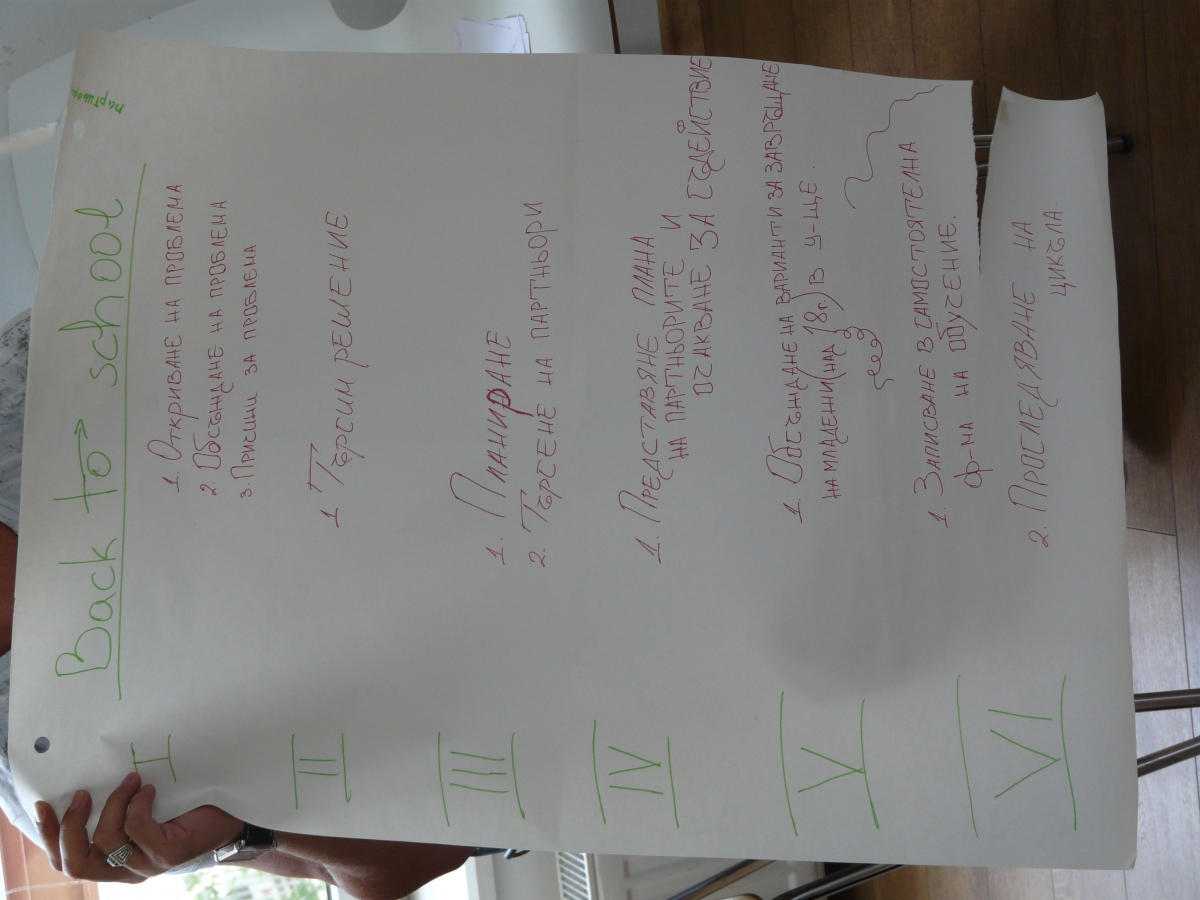 Back to school
I
1. Откриване на проблема
2. Обсъждане на проблема
3. Причини за проблема
II
1 Търсим решение
III
1. Планиране
2. Търсене на партньори
IV
1. Представяне плана
на партньорите и
очакване за съдействие
V
1. Обсъждане на варианти за завръщане
на младежи (над 18г.) в у-ще.
VI
1. Записване в самостоятелна
ф-ма на обучение.
2. Проследяване на
цикъла.